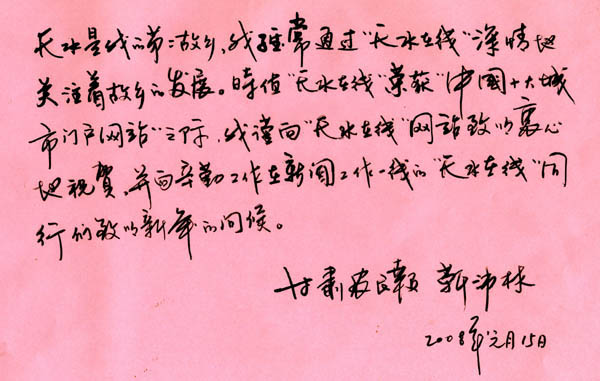 天水是我的第二故乡，我经常通过“天水在线”深情地
关注着故乡的发展。時值“天水在线”荣获“中國十大城
市门户网站”之际，我谨向“天水在线”网站致以衷心
地祝賀，并向辛勤工作在新闻工作一线的“天水在线”同
行们致以新年的问候。
甘肃农民報 靳沛林
2008年元月15日